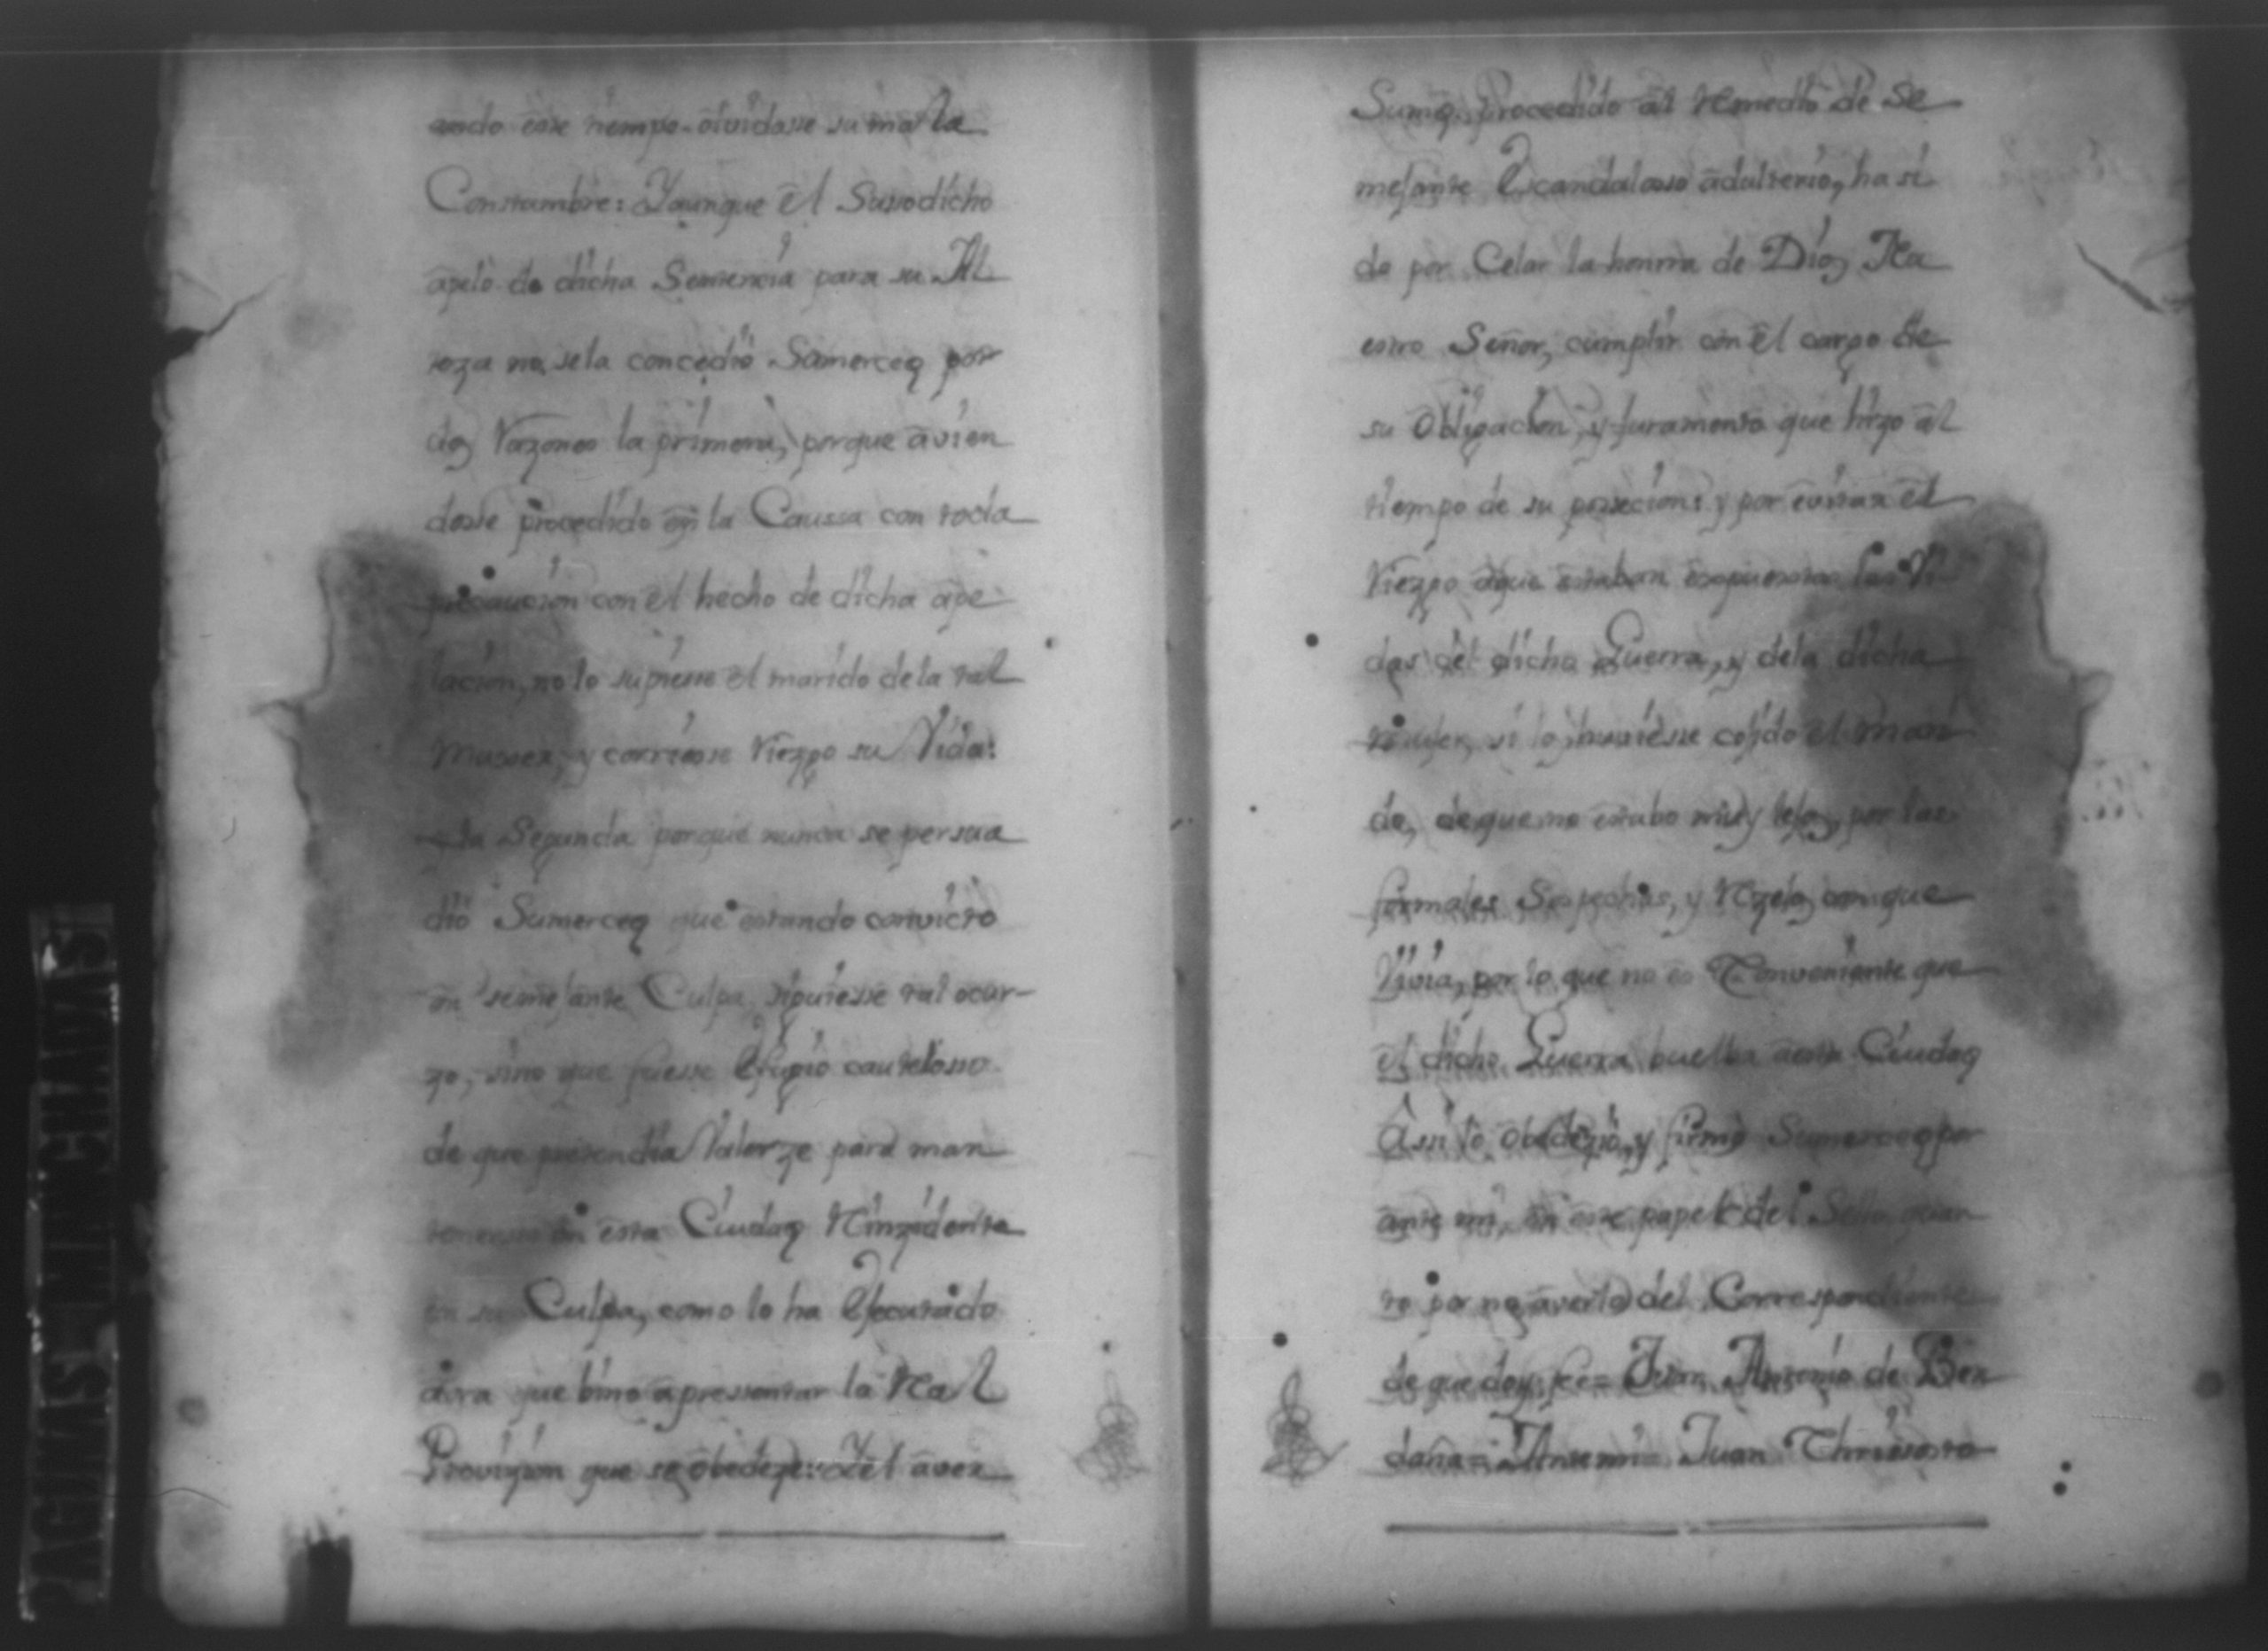 ando este tiempo olvidasse su mala
Constumbre: Yaunque el Sussodicho
apelò de dicha Sentencia para su Al
teza no sela concedió Sumerceq por
dos Razones la primera, porque avien
dosse procedido en la Caussa con toda
precaucion con el hecho de dicha ape
lacion, no lo supiesse el marido de la tal
Muxer, y corriesse Riezgo su Vida:
y la Segunda porque nunca se persua
dió Sumerceq que estando convicto
en semejante Culpa, siguiesse tal ocur-
zo, sino que fuesse Efugio cauteloso
de que pretendia Valerze para man
tenersse en esta Ciudaq Rinzidente
en su Culpa, como lo ha Executado
aora que bino apressentar la Real
Provizion que se obedeze: Yel aver
Sumq. procedido al Remedio de se
mejante Escandaloso adulterio, ha si
do por Celar la honrra de Dios Nu
estro Señor, cumplir con el cargo de
su Obligacion, y Juramento que hizo al
tiempo de su possecion: y por evitar el
Riezgo aque estaban expuestas las Vi
das del dicho Guerra, y dela dicha
muxer, si los huviesse cojido el mari
do, de que no estubo muy lejos, por las
formales Sospechas, y Rezelos con que
Vivia, por lo que no es Conveniente que
el dicho Guerra buelba aesta Ciudaq
Assi lo Obedezió, y firmó Sumerceq por
ante mi, en este papel del Sello quar
to por no averlo del Correspondiente
de que doy fee= Juan Antonio de Ben
daña= Antemi= Juan Chrisosto
PAGINAS MANCHADAS